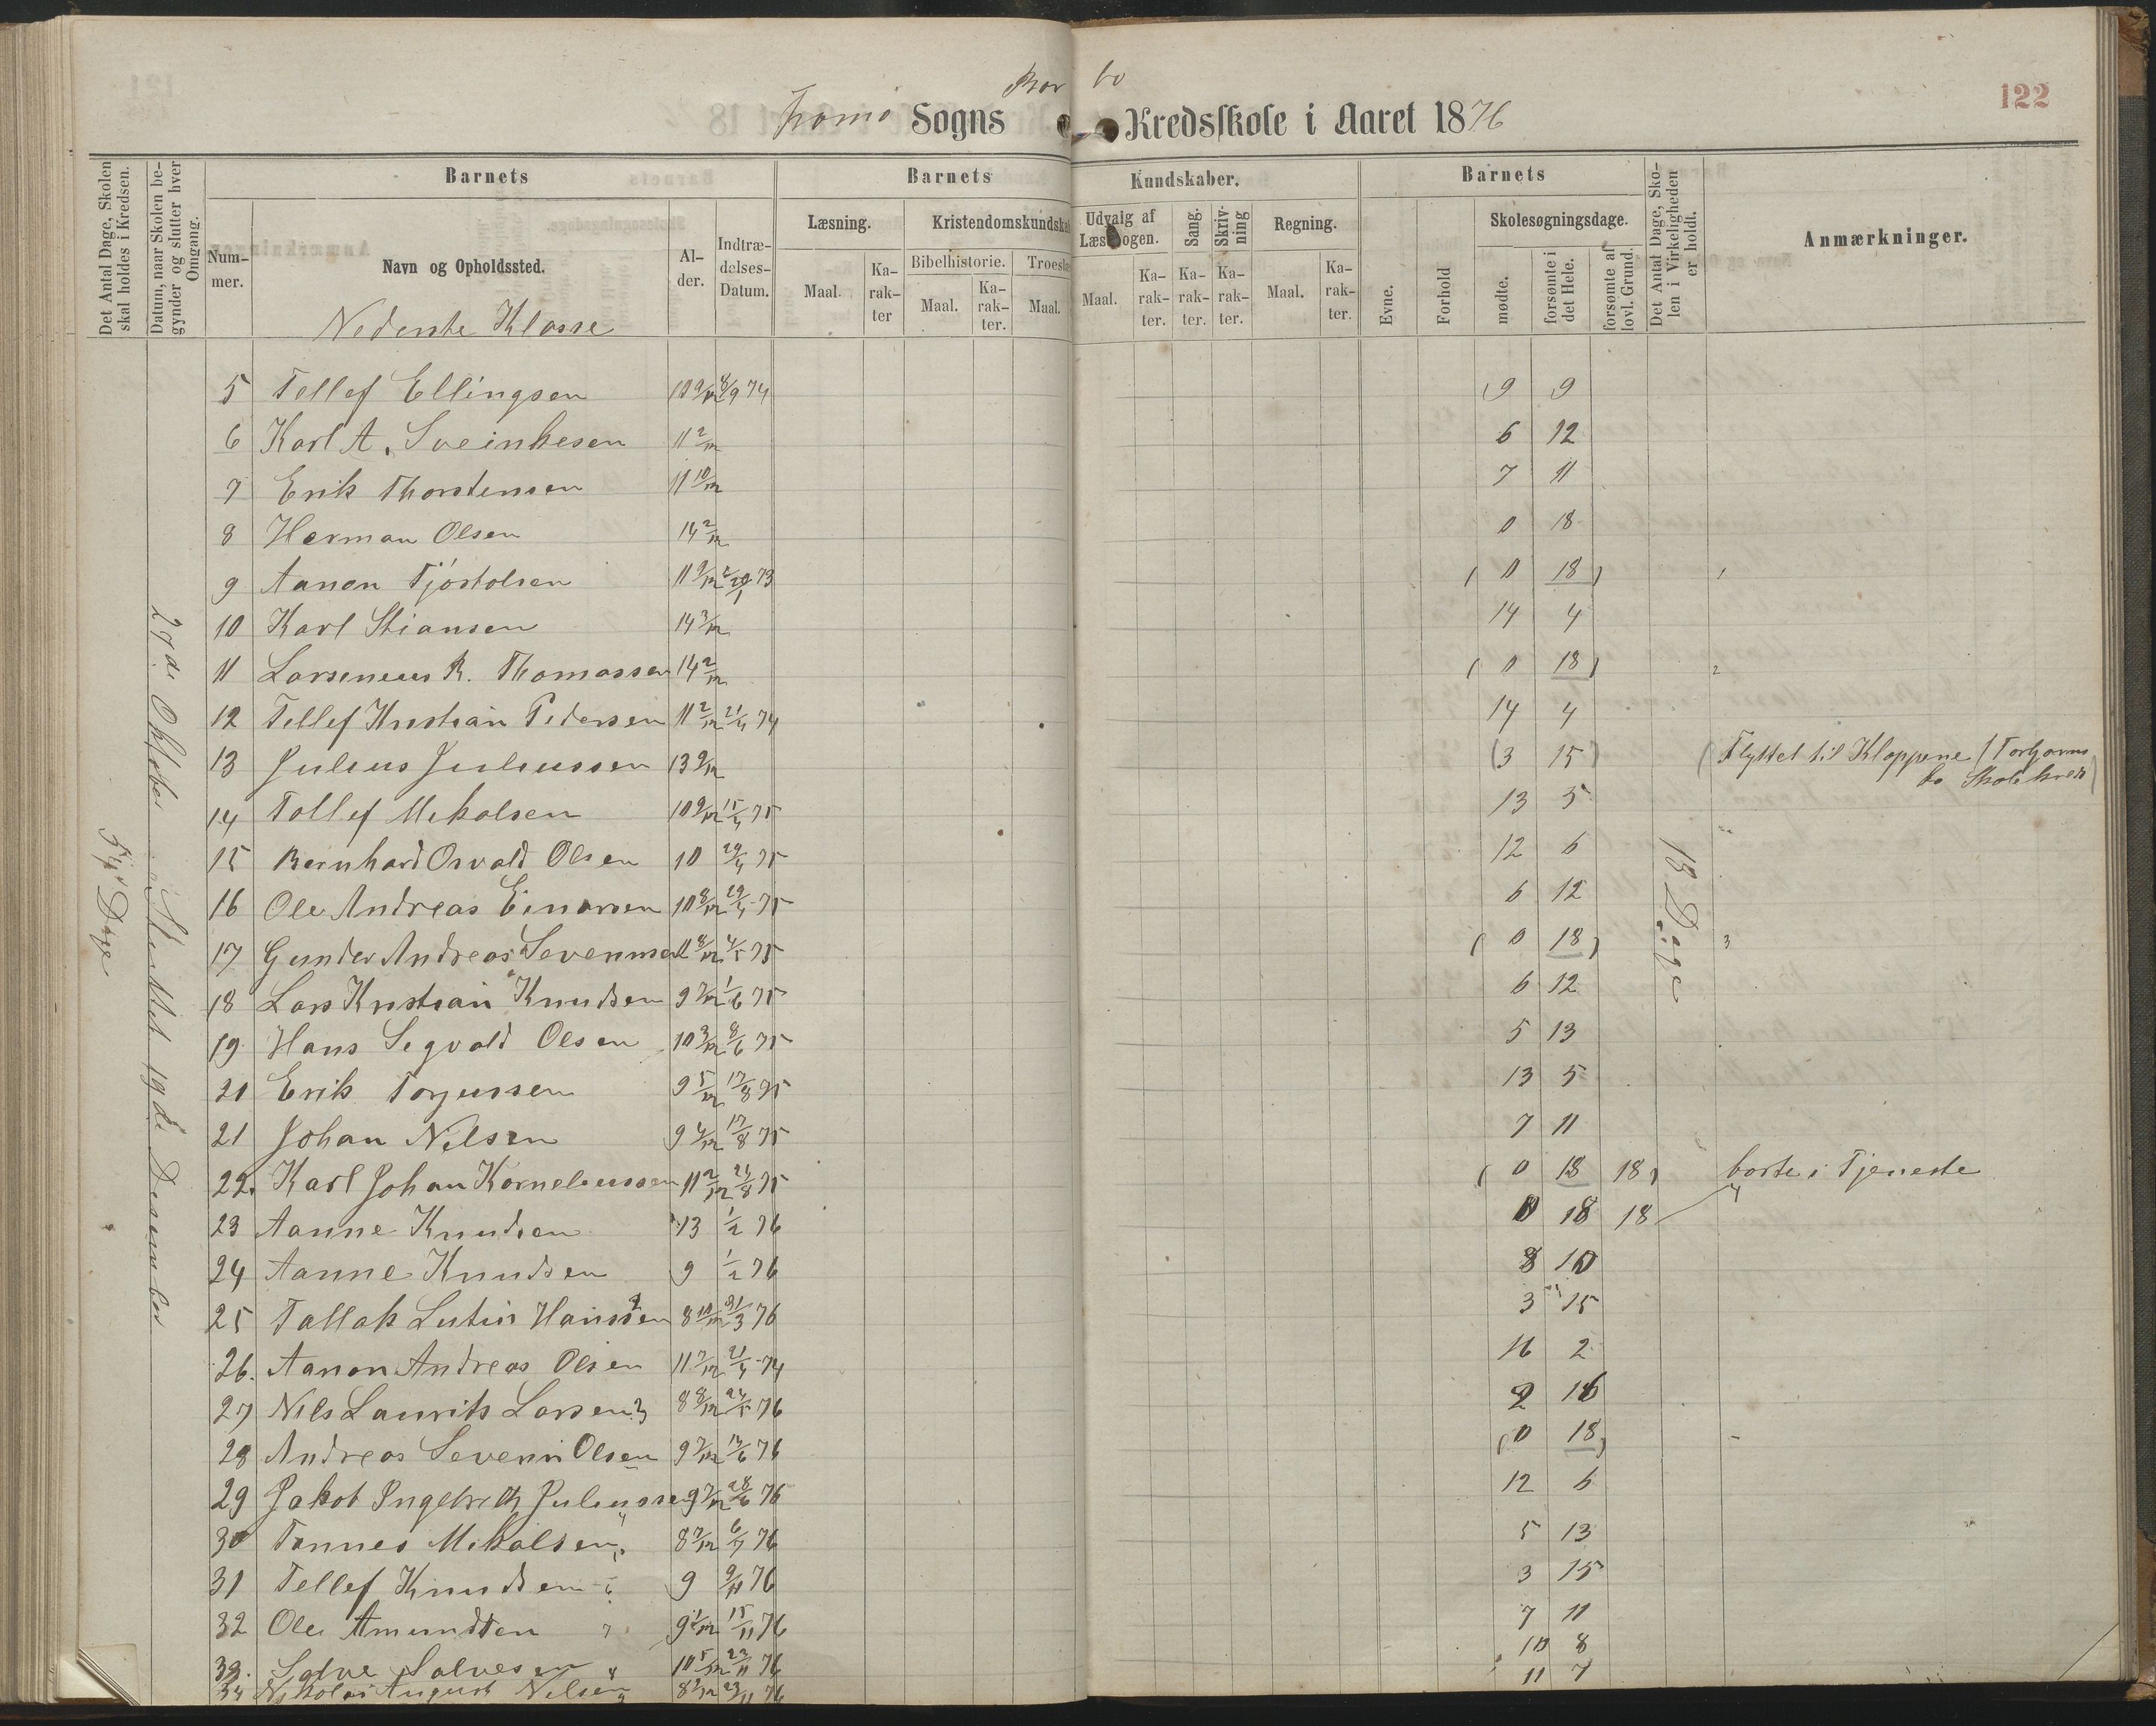 Bor bo
Tromø Sogns Kredsskole i Aaret 1876
122
Det Antal Dage, Skolen skal holdes i Kredsen.
Datum, naar Skolen begynder og slutter hver Omgang.
Barnets
Barnets
Kundskaber.
Barnets
Det Antal Dage, Skolen i Virkeligheden er holdt.
Anmærkninger.
Nummer.
Navn og Opholdssted.
Alder.
Indtrædelses-Datum.
Læsning.
Kristendomskundska
Udvalg af Læsebogen.
Sang.
Skrivning
Regning.
Skolesøgningsdage.
Bibelhistorie.
Troesl
Maal.
Karakter
Maal.
Karakter.
Maal.
Maal.
Karakter.
Karakter.
Karakter.
Maal.
Karakter.
Evne.
Forhold
mødte.
forsømte i det Hele.
forsømte af lovl. Grund.
Nederste Klasse
5 Tellef Ellingsen 10 9/12 8/9 74 9 9
6 Karl A. Sveinkesen 11 2/12 6 12
7 Erik Thorstensen 11 10/12 7 11
8 Herman Olsen 14 2/12 0 18
9 Aanon Tjöstolsen 11 9/12 73 ( 0 18 )
10 Karl Stiansen 14 3/12 14 4
11 Larseneus R. Thomassen 14 2/12 ( 0 18 )
12 Tellef Kristian Pedersen 11 2/12 21/4 74 14 4
13 Julius Juliussen 13 9/12 (3 15) (Flyttet til Kloppene (Torhjorns
bo Skolekreds)
14 Tollef Mikalsen 10 9/12 15/4 75 13 5
15 Bernhard Osvald Olsen 10 29/4 75 12 6
16 Ole Andreas Einarsen 10 8/12 29/4 75 6 12
17 Gunder Andreas Sevenusen 11 8/12 4/5 75 ( 0 18 ) 3
18 Lars Kristian Knudsen 9 7/12 1/6 75 6 12
19 Hans Segvald Olsen 10 3/12 8/6 75 5 13
20 Erik Torjussen 9 5/12 17/8 75 13 5
21 Johan Nilsen 9 4/12 17/8 75 7 11
22. Karl Johan Korneliussen 11 2/12 24/8 75 ( 0 18 18) borte i Tjeneste
23 Aanne Knudsen 13 1/2 76 0 18 18
24 Aanne Knudsen 9 1/2 76 8 10
25 Tallak Lutin Hanssen 8 10/12 31/3 76 3 15
26. Aanon Andreas Olsen 11 7/12 21/4 74 16 2
27 Nils Laurits Larsen 8 8/12 24/5 76 2 16
28 Andreas Severin Olsen 9 7/12 12/6 76 (0 18)
29 Jakob Ingebreth Juliussen 9 7/12 28/6 76 12 6
30 Tønnes Mikalsen 8 7/12 6/7 76 5 13
31 Tellef Knudsen 9 9/11 76 3 15
32 Ole Amundsen 9 1/12 15/11 76 7 11
33. Salve Salvesen 10 5/12 22/11 76 10 8
34 Nikolai August Nilsen 8 2/12 23/11 76 11 7
27de Oktober Sluttet 19de Desember
54 Dage
18 Dage